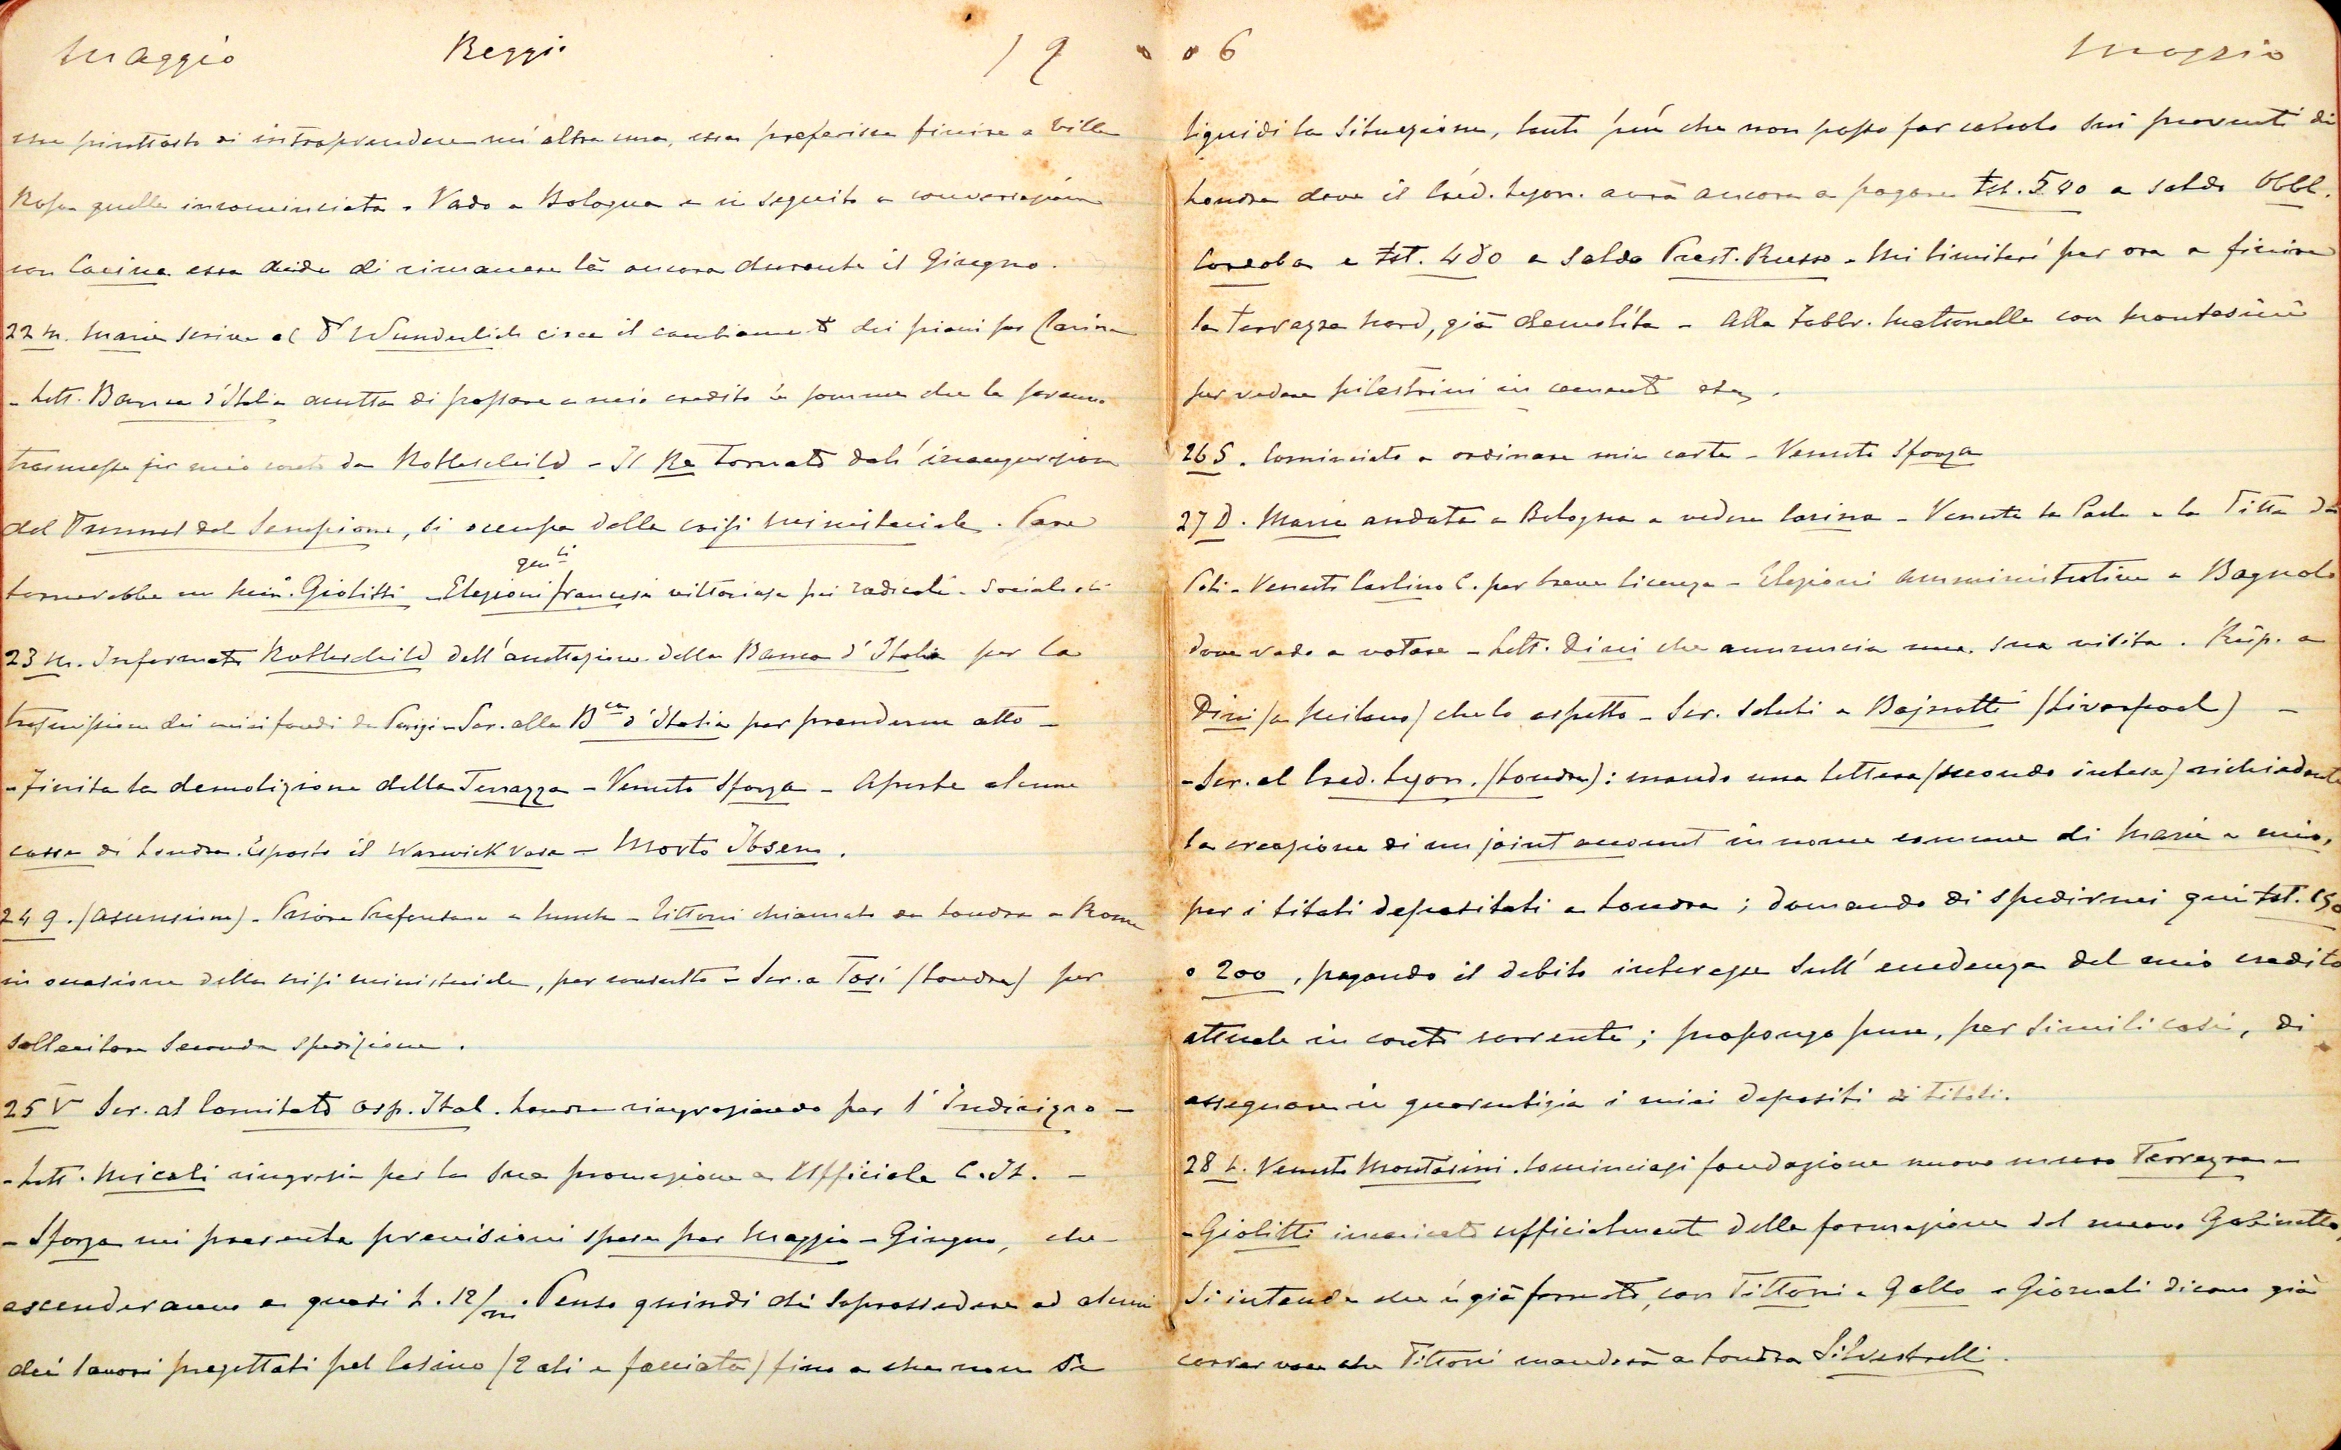 Maggio Reggio 19
che piuttosto di intraprendere un'altra cura, essa preferisce finire a Villa
Rosa quella incominciata. Vado a Bologna e in seguito a conversazione
con Carina essa decide di rimanere là ancora durante il Giugno.
22 M. Marie scrive al Dr Wunderlich circa il cambiamento dei piani per Carina
- Lett. Banca d'Italia accetta di passare a mio credito le somme che le saranno
trasmesse per mio conto da Rothschild - Il Re tornato dall'inaugurazione
del Tunnel del Sempione, si occupa della crisi ministeriale. Pare
tornerebbe un Min. Giolitti - Elezioni gen.li francesi vittoriose pei radicali-socialisti
23 M. Informato Rothschild dell'accettazione della Banca d'Italia per la
trasmissione dei miei fondi da Parigi - Scr. alla Bca d'Italia per prenderne atto -
- Finita la demolizione della Terrazza - Venuto Sforza - Aperte alcune
casse di Londra. Esposto il Warwick Vase - Morto Ibsen.
24 G. (Ascensione) - Priore Prefontana a lunch - Tittoni chiamato da Londra a Roma
in occasione della crisi ministeriale, per consulto - Scr. a Tosi (Londra) per
sollecitare seconda spedizione.
25 V Scr. al Comitato Osp. Ital. Londra ringraziando per l'Indirizzo -
- Lett. Micali ringrazia per la sua promozione a Ufficiale C. It. -
- Sforza mi presenta previsioni spese per Maggio - Giugno, che
ascenderanno a quasi L. 12/m. Penso quindi di soprassedere ad alcuni
dei lavori progettati pel Casino (2 ali e facciata) fino a che non si
06 Maggio
liquidi la situazione, tanto più che non posso far calcolo sui proventi di
Londra dove il Créd. Lyon. avrà ancora a pagare Lst. 540 a saldo Obbl.
Cordoba e Lst. 480 a saldo Prest. Russo - Mi limiterò per ora a finire
la terrazza Nord, già demolita - Alla Fabbr. Mattonelle con Montasini
per vedere pilastrini in cemento etc.
26 S. Cominciato a ordinare mie carte - Venuto Sforza
27 D. Marie andata a Bologna a vedere Carina - Venute la Paola e la Titta da
Poli - Venuto Carlino C. per breve licenza - Elezioni amministrative a Bagnolo
dove vado a votare - Lett. Dini che annuncia una sua visita. Risp. a
Dini (a Milano) che lo aspetto - Scr. saluti a Bajnotti (Liverpool) -
- Scr. al Créd. Lyon. (Londra): mando una lettera (secondo intesa) richiedente
la creazione di un joint account in nome comune di Marie e mio,
per i titoli depositati a Londra; domando di spedirmi qui Lst. 150
o 200, pagando il debito interesse sull'eccedenza del mio credito
attuale in conto corrente; propongo pure, per simili casi, di
assegnare in guarentigia i miei depositi di titoli.
28 L. Venuto Montasini. Cominciasi fondazione nuovo muro Terrazza -
- Giolitti incaricato ufficialmente della formazione del nuovo Gabinetto,
si intende che è già formato, con Tittoni e Gallo - Giornali dicono già
correr voce che Tittoni manderà a Londra Silvestrelli.